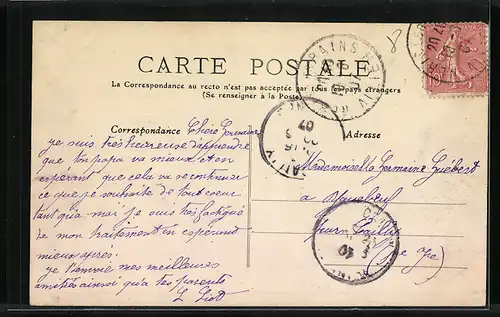 CARTE POSTALE
La Correspondance au recto n'est pas acceptée par tous les pays étrangers
(Se renseigner à la Poste)
Correspondance
Chère Germaine
je suis très heureuse d'apprendre
que ton papa va mieux et en
espérant que cela va continuer
ce que je souhaite de tout cœur
tant qu'à moi je suis très fatigué
de mon traitement en espérant
mieux après.
je t'envoie mes meilleures
amitiés ainsi qu'à tes parents
Adresse
Mademoiselle Germaine Guébert
à
par